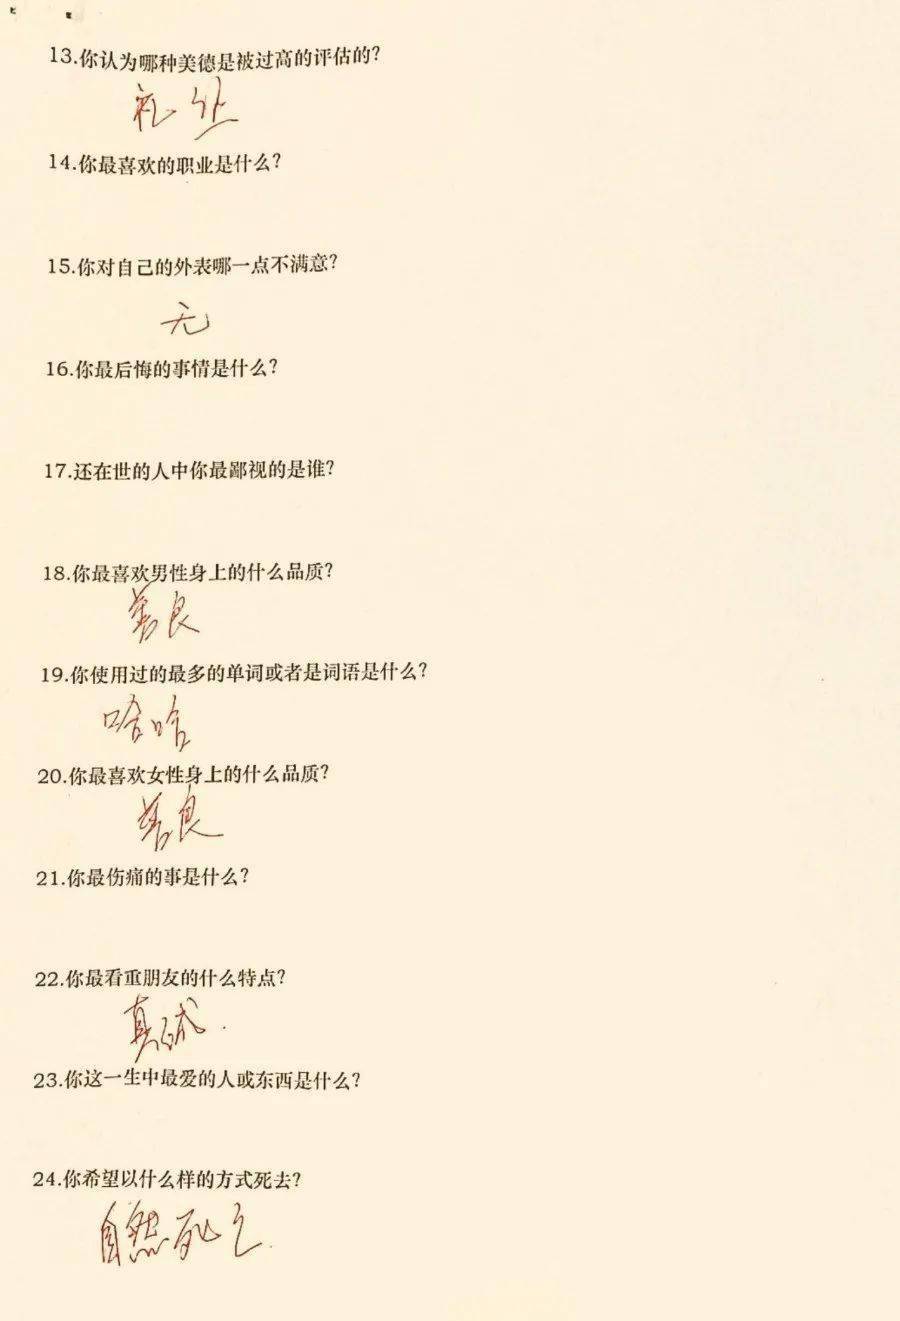 13.你认为哪种美德是被过高的评估的?
礼
14.你最喜欢的职业是什么?
15.你对自己的外表哪一点不满意?
无
16.你最后悔的事情是什么?
17.还在世的人中你最鄙视的是谁?
18.你最喜欢男性身上的什么品质?
善良
19.你使用过的最多的单词或者是词语是什么?
哈哈
20.你最喜欢女性身上的什么品质?
善良
21.你最伤痛的事是什么?
22.你最看重朋友的什么特点?
真诚.
23.你这一生中最爱的人或东西是什么?
24.你希望以什么样的方式死去?
自然死亡.